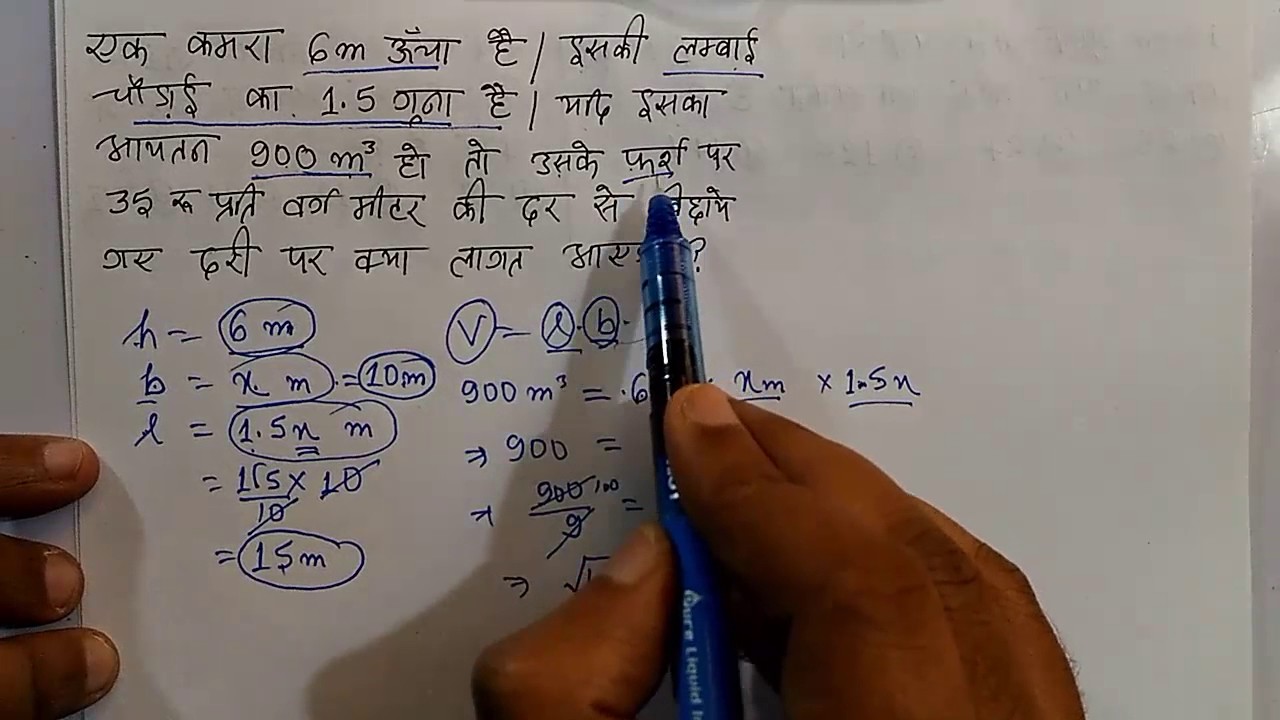 एक कमरा 6m ऊँचा है | इसकी लम्बाई
चौड़ाई का 1.5 गुना है | यदि इसका
आयतन 900 m³ हो तो उसके फ़र्श पर
35 रु प्रति वर्ग मीटर की दर से
गए दरी पर क्या लागत ?
h = 6 m
b = x. m = 10m
l = 1.5x m
= 115/10 × 10
= 15m
V = l . b .
900 m³ = .6 xm × 1.5x
⇒ 900 =
⇒ 900/9 100 =
⇒ √1
Pure Liquid